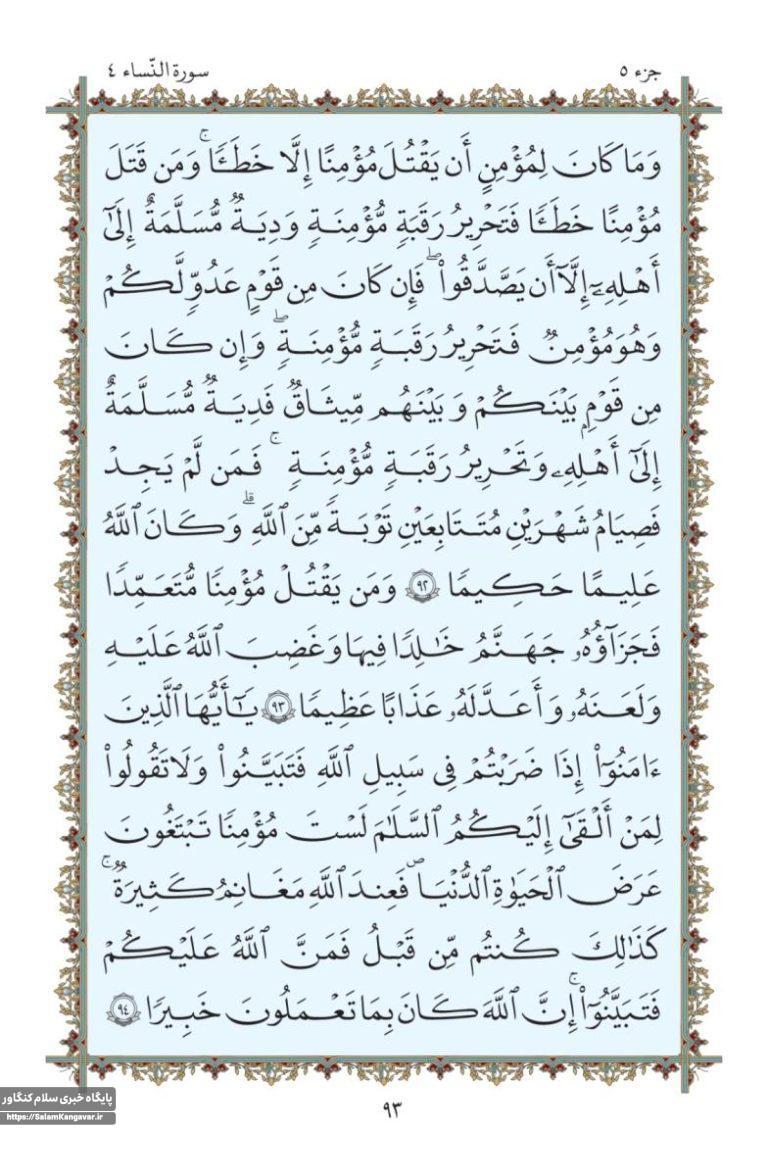 سورة النّساء ٤
جزء ٥
وَمَا كَانَ لِمُؤْمِنٍ أَن يَقْتُلَ مُؤْمِنًا إِلَّا خَطَـًٔا ۚ وَمَن قَتَلَ
مُؤْمِنًا خَطَـًٔا فَتَحْرِيرُ رَقَبَةٍ مُّؤْمِنَةٍ وَدِيَةٌ مُّسَلَّمَةٌ إِلَىٰٓ
أَهْلِهِۦٓ إِلَّآ أَن يَصَّدَّقُوا۟ ۖ فَإِن كَانَ مِن قَوْمٍ عَدُوٍّ لَّكُمْ
وَهُوَ مُؤْمِنٌ فَتَحْرِيرُ رَقَبَةٍ مُّؤْمِنَةٍ ۖ وَإِن كَانَ
مِن قَوْمٍۭ بَيْنَكُمْ وَبَيْنَهُم مِّيثَـٰقٌ فَدِيَةٌ مُّسَلَّمَةٌ
إِلَىٰٓ أَهْلِهِۦ وَتَحْرِيرُ رَقَبَةٍ مُّؤْمِنَةٍ ۚ فَمَن لَّمْ يَجِدْ
فَصِيَامُ شَهْرَيْنِ مُتَتَابِعَيْنِ تَوْبَةً مِّنَ ٱللَّهِ ۗ وَكَانَ ٱللَّهُ
عَلِيمًا حَكِيمًا ٩٢ وَمَن يَقْتُلْ مُؤْمِنًا مُّتَعَمِّدًا
فَجَزَآؤُهُۥ جَهَنَّمُ خَـٰلِدًا فِيهَا وَغَضِبَ ٱللَّهُ عَلَيْهِ
وَلَعَنَهُۥ وَأَعَدَّ لَهُۥ عَذَابًا عَظِيمًا ٩٣ يَـٰٓأَيُّهَا ٱلَّذِينَ
ءَامَنُوٓا۟ إِذَا ضَرَبْتُمْ فِى سَبِيلِ ٱللَّهِ فَتَبَيَّنُوا۟ وَلَا تَقُولُوا۟
لِمَنْ أَلْقَىٰٓ إِلَيْكُمُ ٱلسَّلَـٰمَ لَسْتَ مُؤْمِنًا تَبْتَغُونَ
عَرَضَ ٱلْحَيَوٰةِ ٱلدُّنْيَا فَعِندَ ٱللَّهِ مَغَانِمُ كَثِيرَةٌ ۚ
كَذَٰلِكَ كُنتُم مِّن قَبْلُ فَمَنَّ ٱللَّهُ عَلَيْكُمْ
فَتَبَيَّنُوٓا۟ ۚ إِنَّ ٱللَّهَ كَانَ بِمَا تَعْمَلُونَ خَبِيرًا ٩٤
٩٣
پایگاه خبری سلام کنگاور
https://SalamKangavar.ir